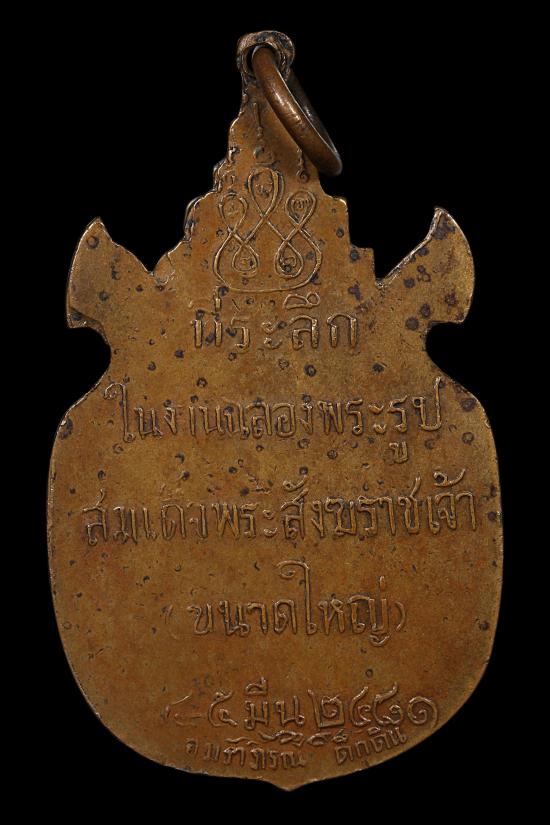 ที่ระลึก
ในงานฉลองพระรูป
สมเด็จพระสังฆราชเจ้า
(ขนาดใหญ่)
๔-๕ มีน ๒๔๘๑